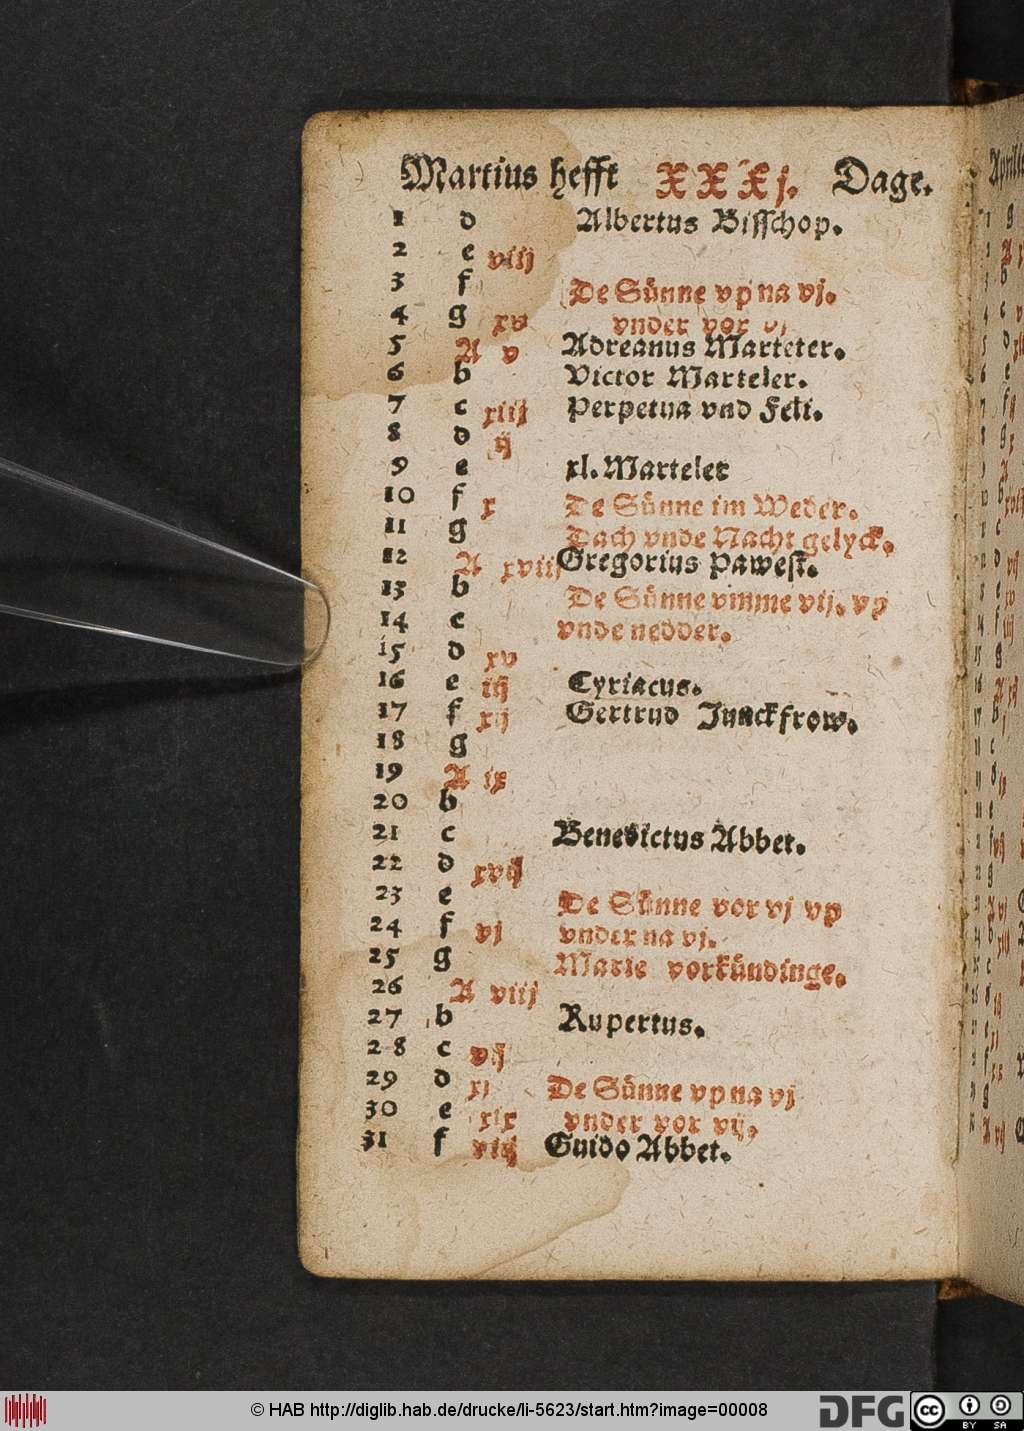 Martius hefft XXXj. Dage.
1 d Albertus Bisschop.
2 e viij
3 f De Sünne vp na vj.
4 g xv vnder vor vj
5 A v Adreanus Marteler.
6 b Victor Marteler.
7 c xiij Perpetua vnd Feli.
8 d ij
9 e xl. Marteler
10 f x De Sünne im Weder.
11 g Dach vnde Nacht gelyck.
12 A xviij Gregorius Pawest.
13 b De Sünne vmme vij. vp
14 c vnde nedder.
15 d xv
16 e iij Cyriacus.
17 f xij Gertrud Junckfrow.
18 g
19 A ix
20 b
21 c Benedictus Abbet.
22 d xvij
23 e De Sünne vor vj vp
24 f vj vnder na vj.
25 g Marie vorkündinge.
26 A viij
27 b Rupertus.
28 c vij
29 d xj De Sünne vp na vj
30 e xix vnder vor vij,
31 f viij Guido Abbet.
© HAB http://diglib.hab.de/drucke/li-5623/start.htm?image=00008
DFG
cc BY SA